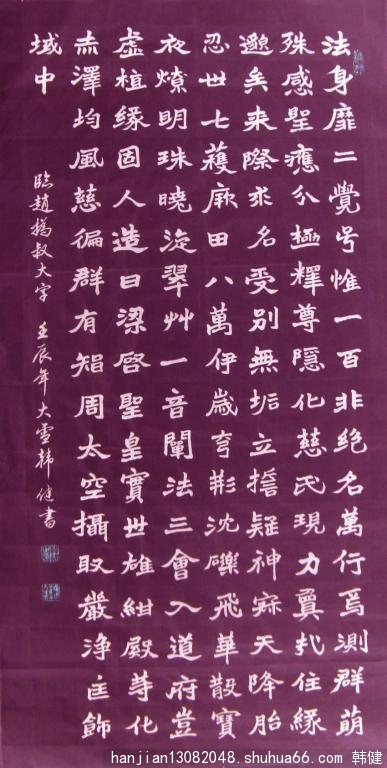 法身靡二覺号惟一百非絕名萬行焉測群萌
殊感聖應分極釋尊隱化慈氏現力冀礼住緣
邈矣來際求名受別無垢立擔疑神寂天降胎
忍世七穫厥田八萬伊歲亨彬沈礫飛華散寶
夜燎明珠曉旋翠艸一音闡法三會入道府豈
虛植緣固人造曰梁啓聖皇實世雄紺殿等化
赤澤均風慈偏群有智周太空攝取嚴淨庄飾
域中
臨趙撝叔大字 壬辰年大雪韓健書
hanjian13082048.shuhua66.com 韩健